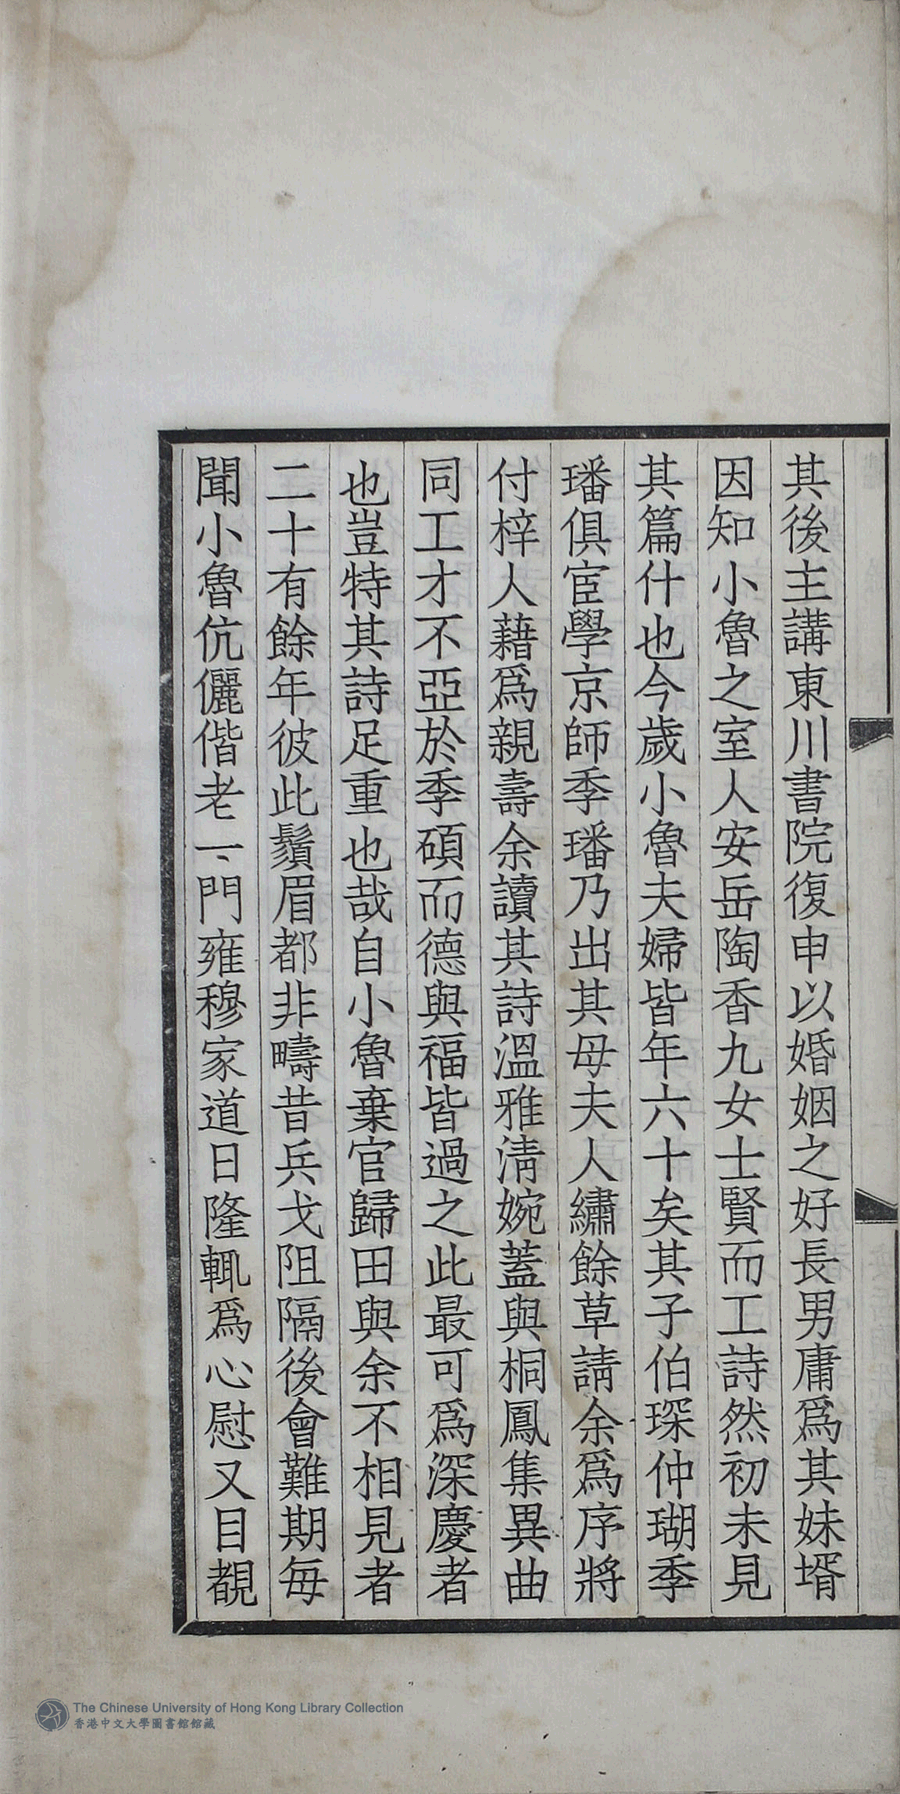 其後主講東川書院復申以婚姻之好長男庸爲其妹壻
因知小魯之室人安岳陶香九女士賢而工詩然初未見
其篇什也今歲小魯夫婦皆年六十矣其子伯琛仲瑚季
璠俱宦學京師季璠乃出其母夫人繡餘草請余爲序將
付梓人藉爲親壽余讀其詩溫雅淸婉蓋與桐鳳集異曲
同工才不亞於季碩而德與福皆過之此最可爲深慶者
也豈特其詩足重也哉自小魯棄官歸田與余不相見者
二十有餘年彼此鬚眉都非疇昔兵戈阻隔後會難期每
聞小魯伉儷偕老一門雍穆家道日隆輒爲心慰又目覩
The Chinese University of Hong Kong Library Collection
香港中文大學圖書館館藏